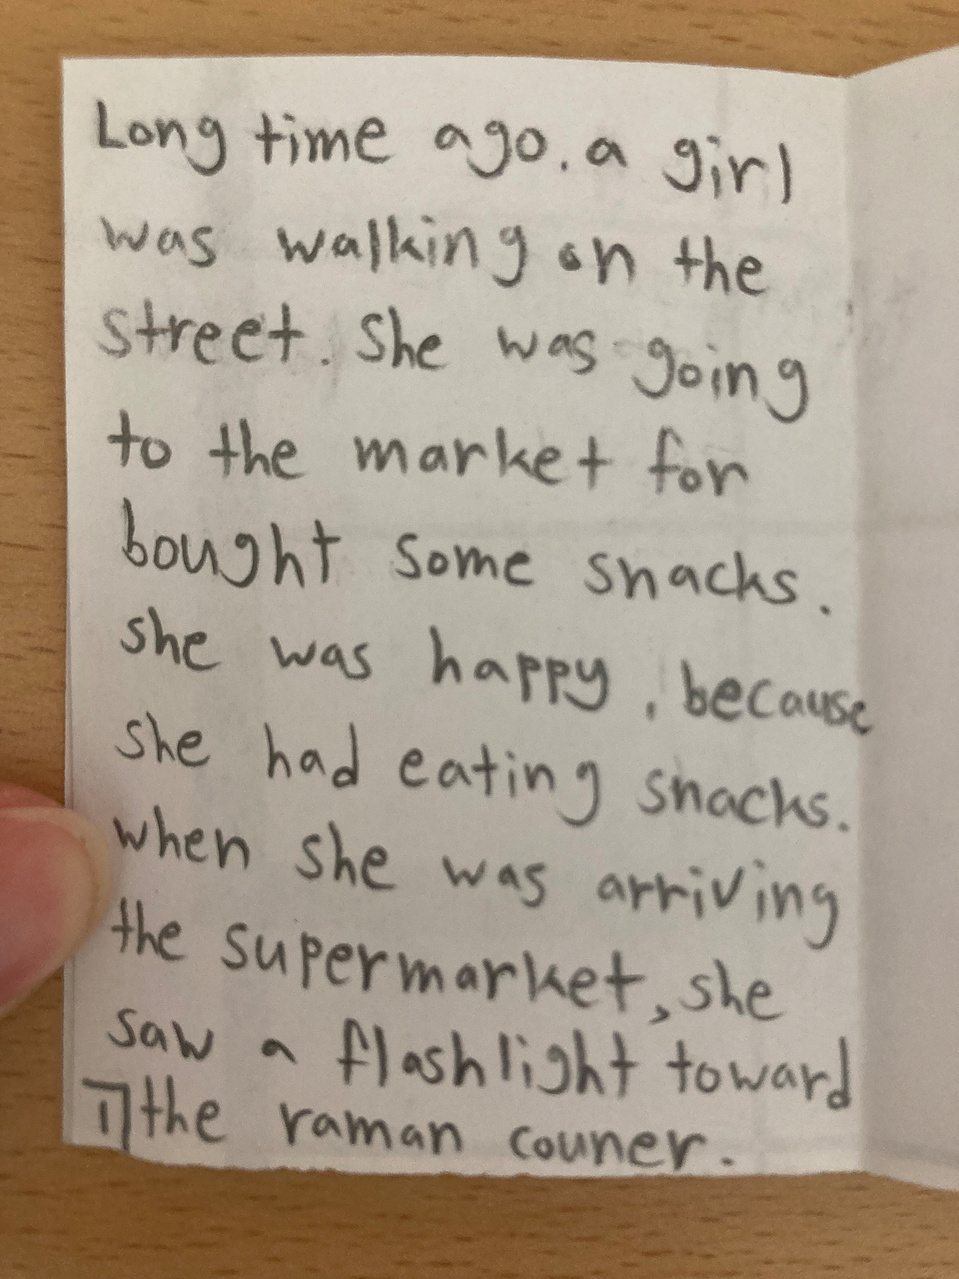 Long time ago. a girl
was walking on the
street. She was going
to the market for
bought some snacks.
she was happy, because
she had eating snacks.
when she was arriving
the supermarket, she
saw a flashlight toward
the raman couner.
1